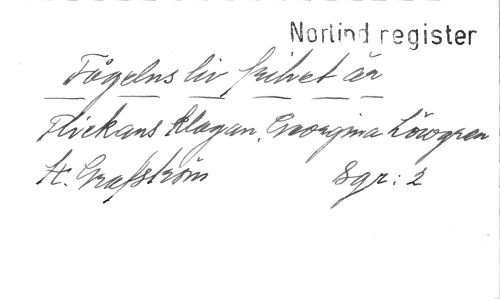 Norlind register
Fågelns liv frihet är
Flickans klagan. Georgina Löwgren
A. Grafström Sgr: 2